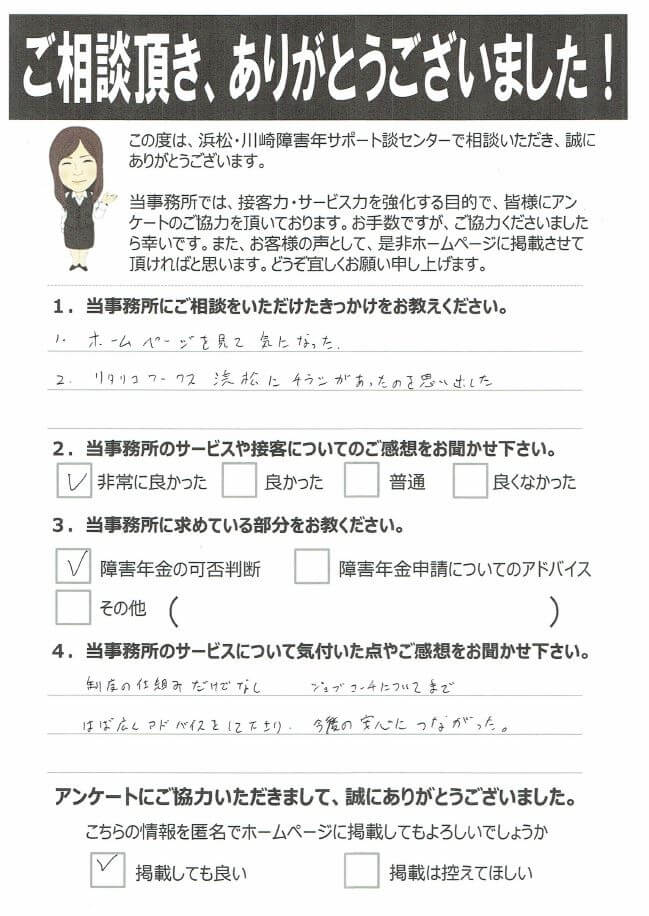 ご相談頂き、ありがとうございました！
この度は、浜松・川崎障害年サポート談センターで相談いただき、誠に
ありがとうございます。
当事務所では、接客力・サービス力を強化する目的で、皆様にアン
ケートのご協力を頂いております。お手数ですが、ご協力くださいました
ら幸いです。また、お客様の声として、是非ホームページに掲載させて
頂ければと思います。どうぞ宜しくお願い申し上げます。
１．当事務所にご相談をいただけたきっかけをお教えください。
1. ホームページを見て 気になった.
2. リタリコワークス 浜松に チラシがあったのを思い出した
２．当事務所のサービスや接客についてのご感想をお聞かせ下さい。
✓ 非常に良かった 良かった 普通 良くなかった
３．当事務所に求めている部分をお教ください。
✓ 障害年金の可否判断 障害年金申請についてのアドバイス
その他 （ ）
４．当事務所のサービスについて気付いた点やご感想をお聞かせ下さい。
制度の仕組みだけでなし ジョブコーチについてまで
はば広しアドバイスをして下さり. 今後の安心につながった。
アンケートにご協力いただきまして、誠にありがとうございました。
こちらの情報を匿名でホームページに掲載してもよろしいでしょうか
✓ 掲載しても良い 掲載は控えてほしい